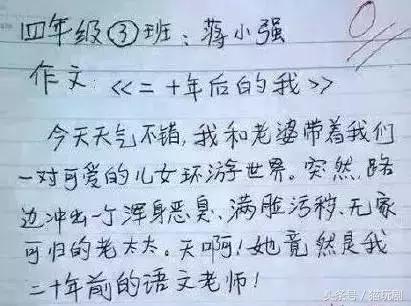 四年级③班:蒋小强
作文:《二十年后的我》
今天天气不错,我和老婆带着我们
一对可爱的儿女环游世界。突然,路
边冲出一个浑身恶臭、满脸污秽、无家
可归的老太太。天啊!她竟然是我
二十年前的语文老师!
0
头条号/猫玩剧